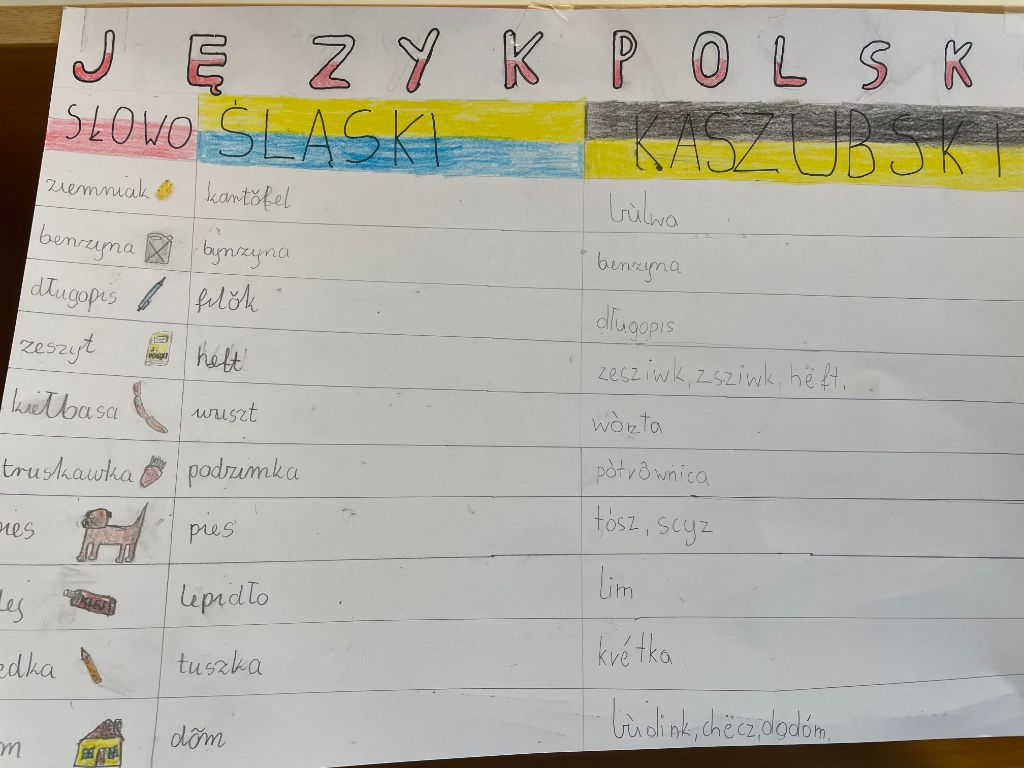 JĘZYK POLSK
SŁOWO ŚLĄSKI KASZUBSKI
ziemniak kantŏfel bùlwa
benzyna bynzyna benzyna
długopis filŏk długopis
zeszyt heft zesziwk, zsziwk, hëft.
kiełbasa wuszt wòrzta
truskawka podzimka pòtrôwnica
pies pies tósz, scyz
lepidło lim
edka tuszka krétka
m dŏm bùdink, chëcz, dodóm,